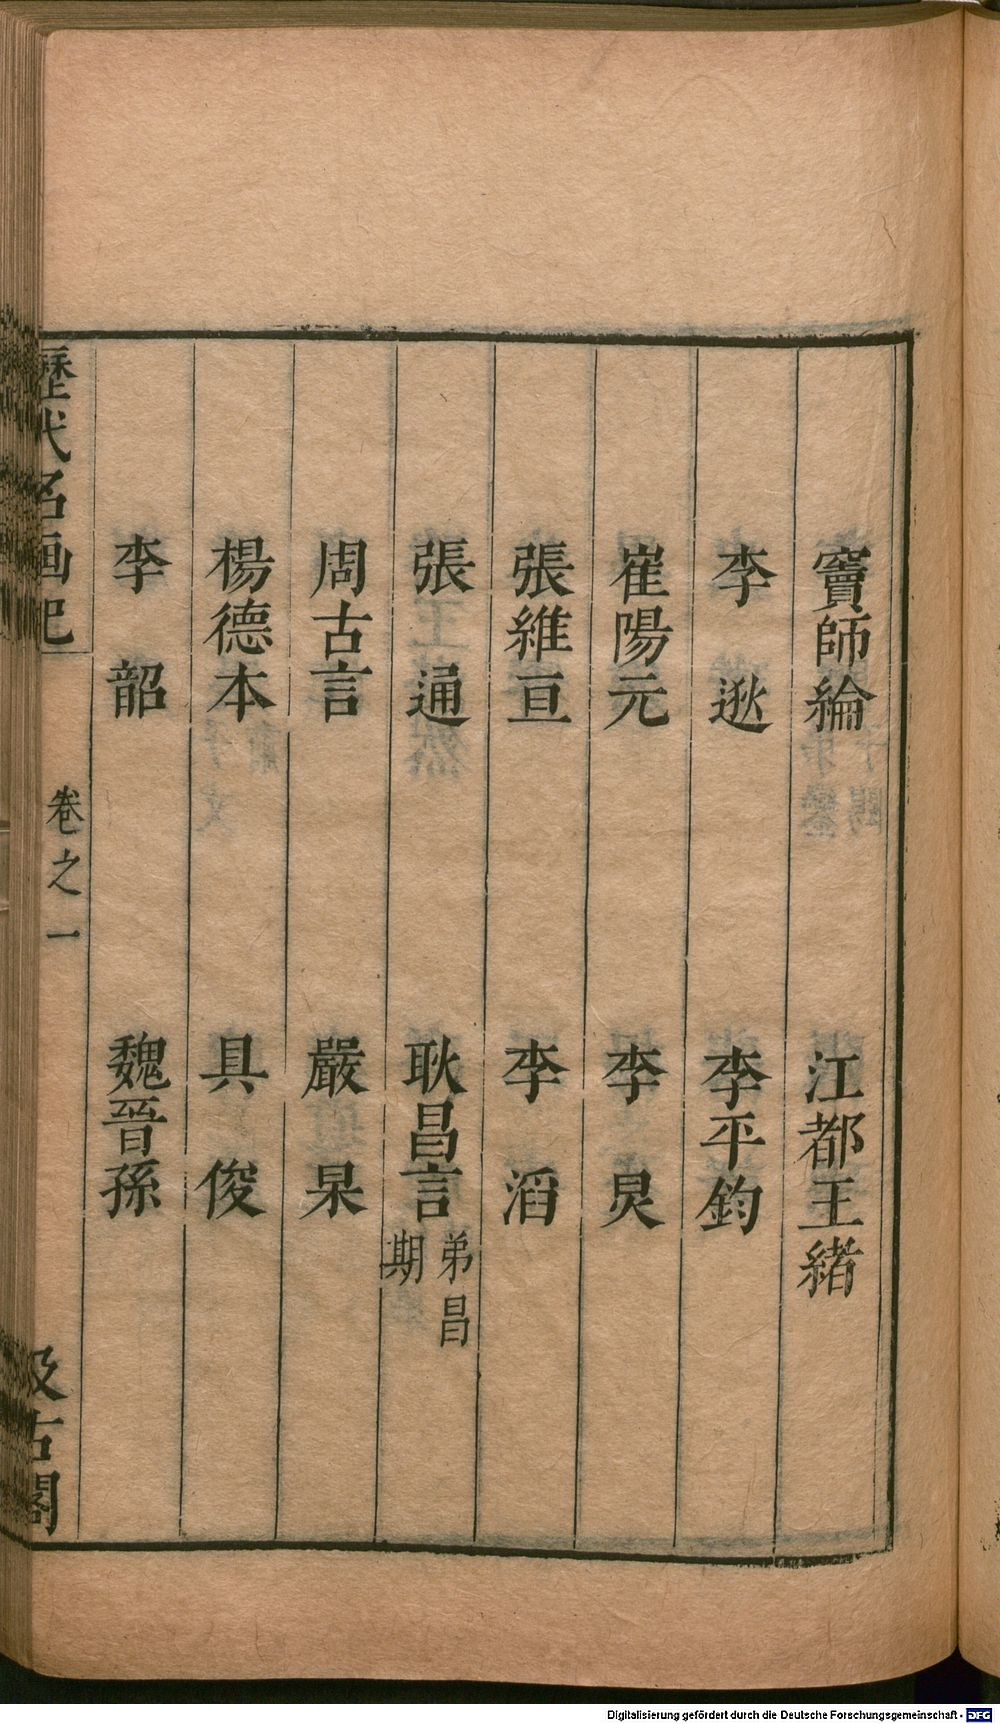 竇師綸 江都王緒
李逖 李平鈞
崔陽元 李炅
張維亘 李滔
張通 耿昌言 弟昌期
周古言 嚴杲
楊德本 具俊
李韶 魏晉孫
歷代名画記 卷之一 汲古閣
Digitalisierung gefördert durch die Deutsche Forschungsgemeinschaft - DFG